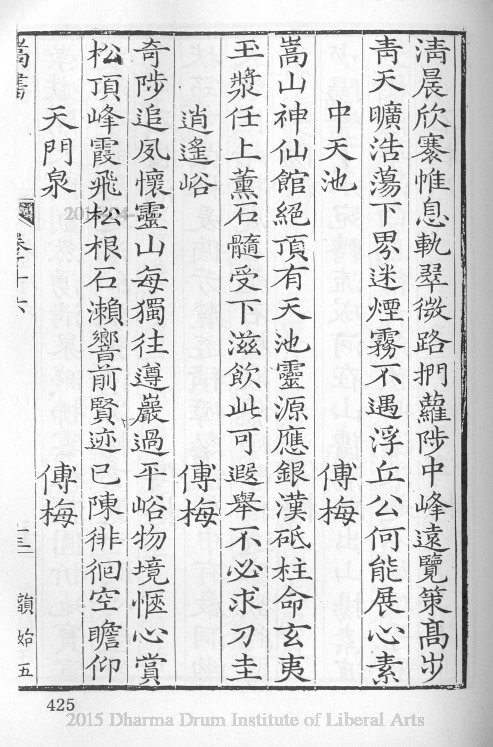 清晨欣褰惟息軌翠微路捫蘿陟中峰遠覽策高步
青天曠浩蕩下界迷煙霧不遇浮丘公何能展心素
中天池 傅梅
嵩山神仙館絕頂有天池靈源應銀漢砥柱命玄夷
玉漿任上薰石髓受下滋飲此可遐舉不必求刀圭
逍遙峪 傅梅
奇陟追夙懷靈山每獨往遵巖過平峪物境愜心賞
松頂峰霞飛松根石瀨響前賢迹已陳徘徊空瞻仰
天門泉 傅梅
嵩書 卷十六 韻始五
425
2015 Dharma Drum Institute of Liberal Arts